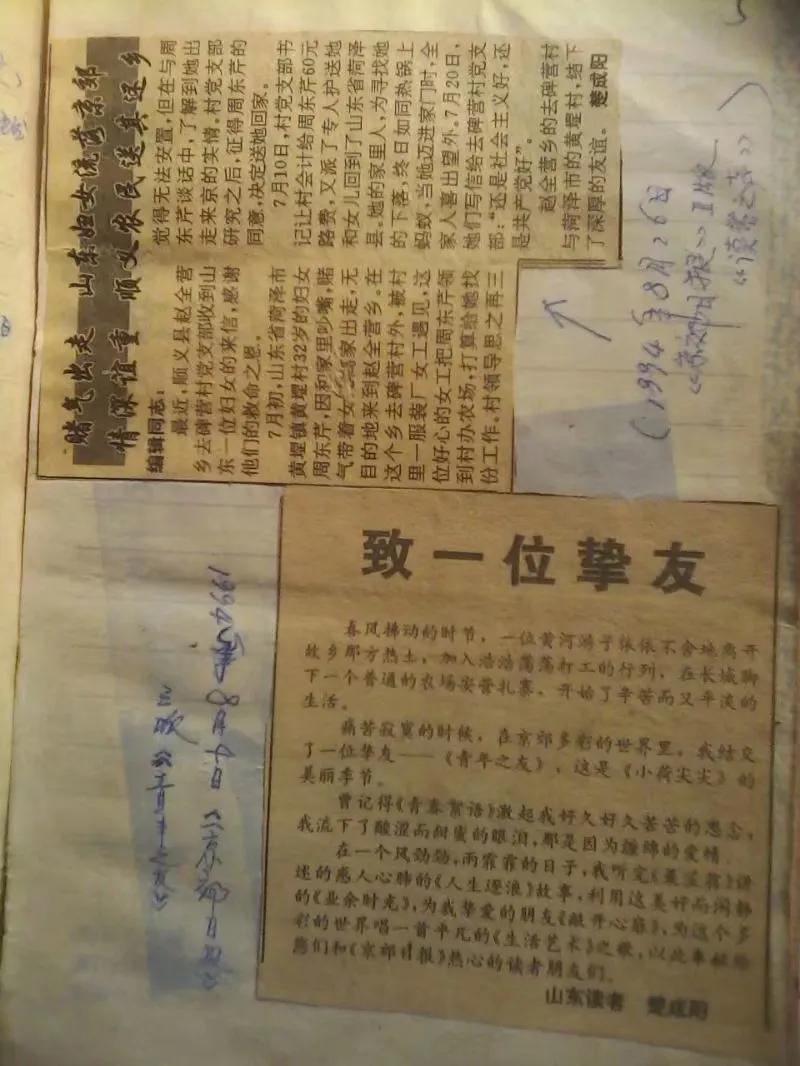 赌气出走 山东妇女流落京郊
情深谊重 顺义农民送其还乡
编辑同志：
最近，顺义县赵全营
乡去碑营村党支部收到山
东一位妇女的来信，感谢
他们的救命之恩。
7月初，山东省菏泽市
黄堽镇黄堽村32岁的妇女
周东芹，因和家里吵嘴，赌
气带着女 离家出走，无
目的地来到赵全营乡。在
这个乡去碑营村外，被村
里一服装厂女工遇见，这
位好心的女工把周东芹领
到村办农场，打算给她找
份工作。村领导思之再三
觉得无法安置，但在与周
东芹谈话中，了解到她出
走来京的实情。村党支部
研究之后，征得周东芹的
同意，决定送她回家。
7月10日，村党支部书
记让村会计给周东芹60元
路费，又派了专人护送她
和女儿回到了山东省菏泽
县。她的家里人，为寻找她
的下落，终日如同热锅上
蚂蚁，当她迈进家门时，全
家人喜出望外。7月20日，
她们写信给去碑营村党支
部：“还是社会主义好，还
是共产党好”。
赵全营乡的去碑营村
与菏泽市的黄堽村，结下
了深厚的友谊。 楚成阳
（1994年8月26日
《京郊日报》Ⅱ版
《读者之声》）
致一位挚友
春风拂动的时节，一位黄河游子依依不舍地离开
故乡那方热土，加入浩浩荡荡打工的行列，在长城脚
下一个普通的农场安营扎寨，开始了辛苦而又平淡的
生活。
痛苦寂寞的时候，在京郊多彩的世界里，我结交
了一位挚友——《青年之友》，这是《小荷尖尖》的
美丽季节。
曾记得《青春絮语》激起我好久好久苦苦的思念，
我流下了酸涩而甜蜜的眼泪，那是因为缠绵的爱情。
在一个风劲劲，雨霏霏的日子，我听完 讲
述的感人心肺的《人生逐浪》故事，利用这美好而闲静
的《业余时光》，为我挚爱的朋友《敞开心扉》，为这个多
彩的世界唱一首平凡的《生活艺术》之歌，以此奉献给
您们和《京郊日报》热心的读者朋友们。
山东读者 楚成阳
1994年8月